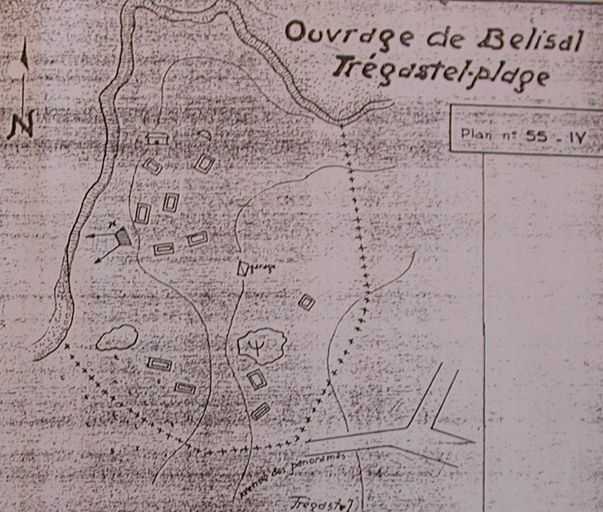 Ouvrage de Belisal
Trégastel-plage
N
Plan n° 55 - IV
garage
avenue des panoramas
Trégastel